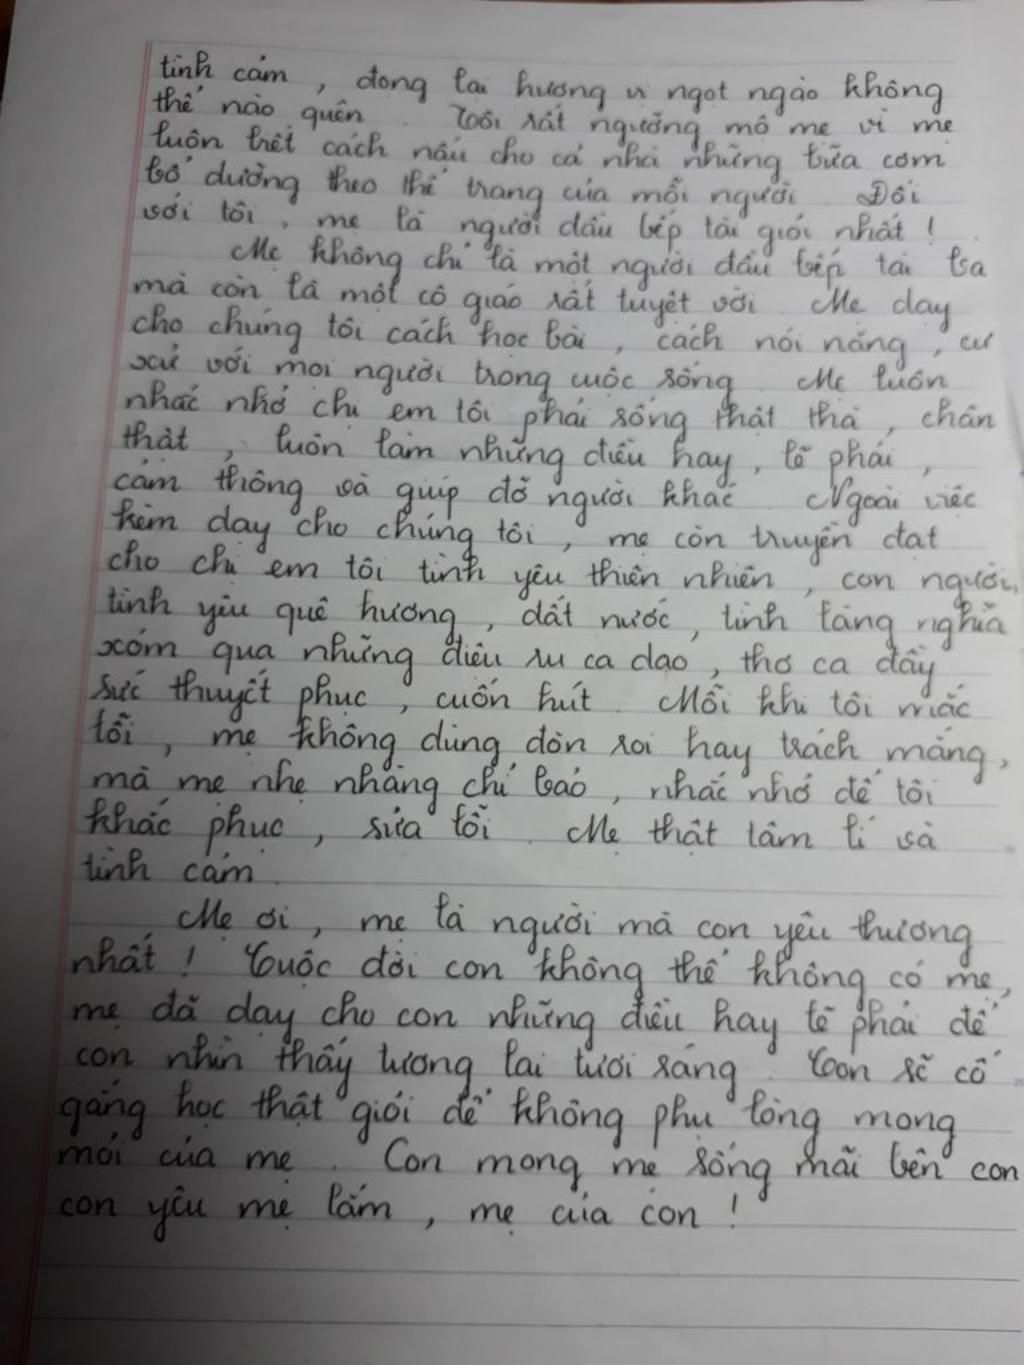 tình cảm, đọng lại hương vị ngọt ngào không
thể nào quên. Tôi rất ngưỡng mộ mẹ vì mẹ
luôn biết cách nấu cho cả nhà những bữa cơm
bổ dưỡng theo thể trạng của mỗi người. Đối
với tôi, mẹ là người đầu bếp tài giỏi nhất!
Mẹ không chỉ là một người đầu bếp tài ba
mà còn là một cô giáo rất tuyệt vời. Mẹ dạy
cho chúng tôi cách học bài, cách nói năng, cư
xử với mọi người trong cuộc sống. Mẹ luôn
nhắc nhở chị em tôi phải sống thật thà, chân
thật, luôn làm những điều hay, lẽ phải,
cảm thông và giúp đỡ người khác. Ngoài việc
kèm dạy cho chúng tôi, mẹ còn truyền đạt
cho chị em tôi tình yêu thiên nhiên, con người,
tình yêu quê hương, đất nước, tình làng nghĩa
xóm qua những điệu ru ca dao, thơ ca đầy
sức thuyết phục, cuốn hút. Mỗi khi tôi mắc
lỗi, mẹ không dùng đòn roi hay trách mắng,
mà mẹ nhẹ nhàng chỉ bảo, nhắc nhở để tôi
khắc phục, sửa lỗi. Mẹ thật tâm lí và
tình cảm.
Mẹ ơi, mẹ là người mà con yêu thương
nhất! Cuộc đời con không thể không có mẹ,
mẹ đã dạy cho con những điều hay lẽ phải để
con nhìn thấy tương lai tươi sáng. Con sẽ cố
gắng học thật giỏi để không phụ lòng mong
mỏi của mẹ. Con mong mẹ sống mãi bên con
con yêu mẹ lắm, mẹ của con!